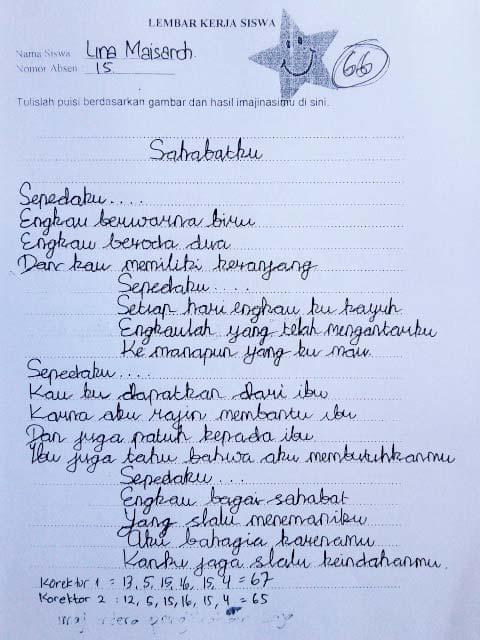 LEMBAR KERJA SISWA
Nama Siswa : Lina Maisaroh
Nomor Absen : 15
66
Tulislah puisi berdasarkan gambar dan hasil imajinasimu di sini.
Sahabatku
Sepedaku....
Engkau berwarna biru
Engkau beroda dua
Dan kau memiliki keranjang
Sepedaku....
Setiap hari engkau ku kayuh
Engkaulah yang telah mengantarku
Ke manapun yang ku mau
Sepedaku....
Kau ku dapatkan dari ibu
Karna aku rajin membantu ibu
Dan juga patuh kepada ibu
Ibu juga tahu bahwa aku membutuhkanmu
Sepedaku...
Engkau bagai sahabat
Yang slalu menemaniku
Aku bahagia karenamu
Kanku jaga slalu keindahanmu.
Korektor 1 = 13, 5, 15, 16, 15, 4 = 67
Korektor 2 = 12, 5, 15, 16, 15, 4 = 65